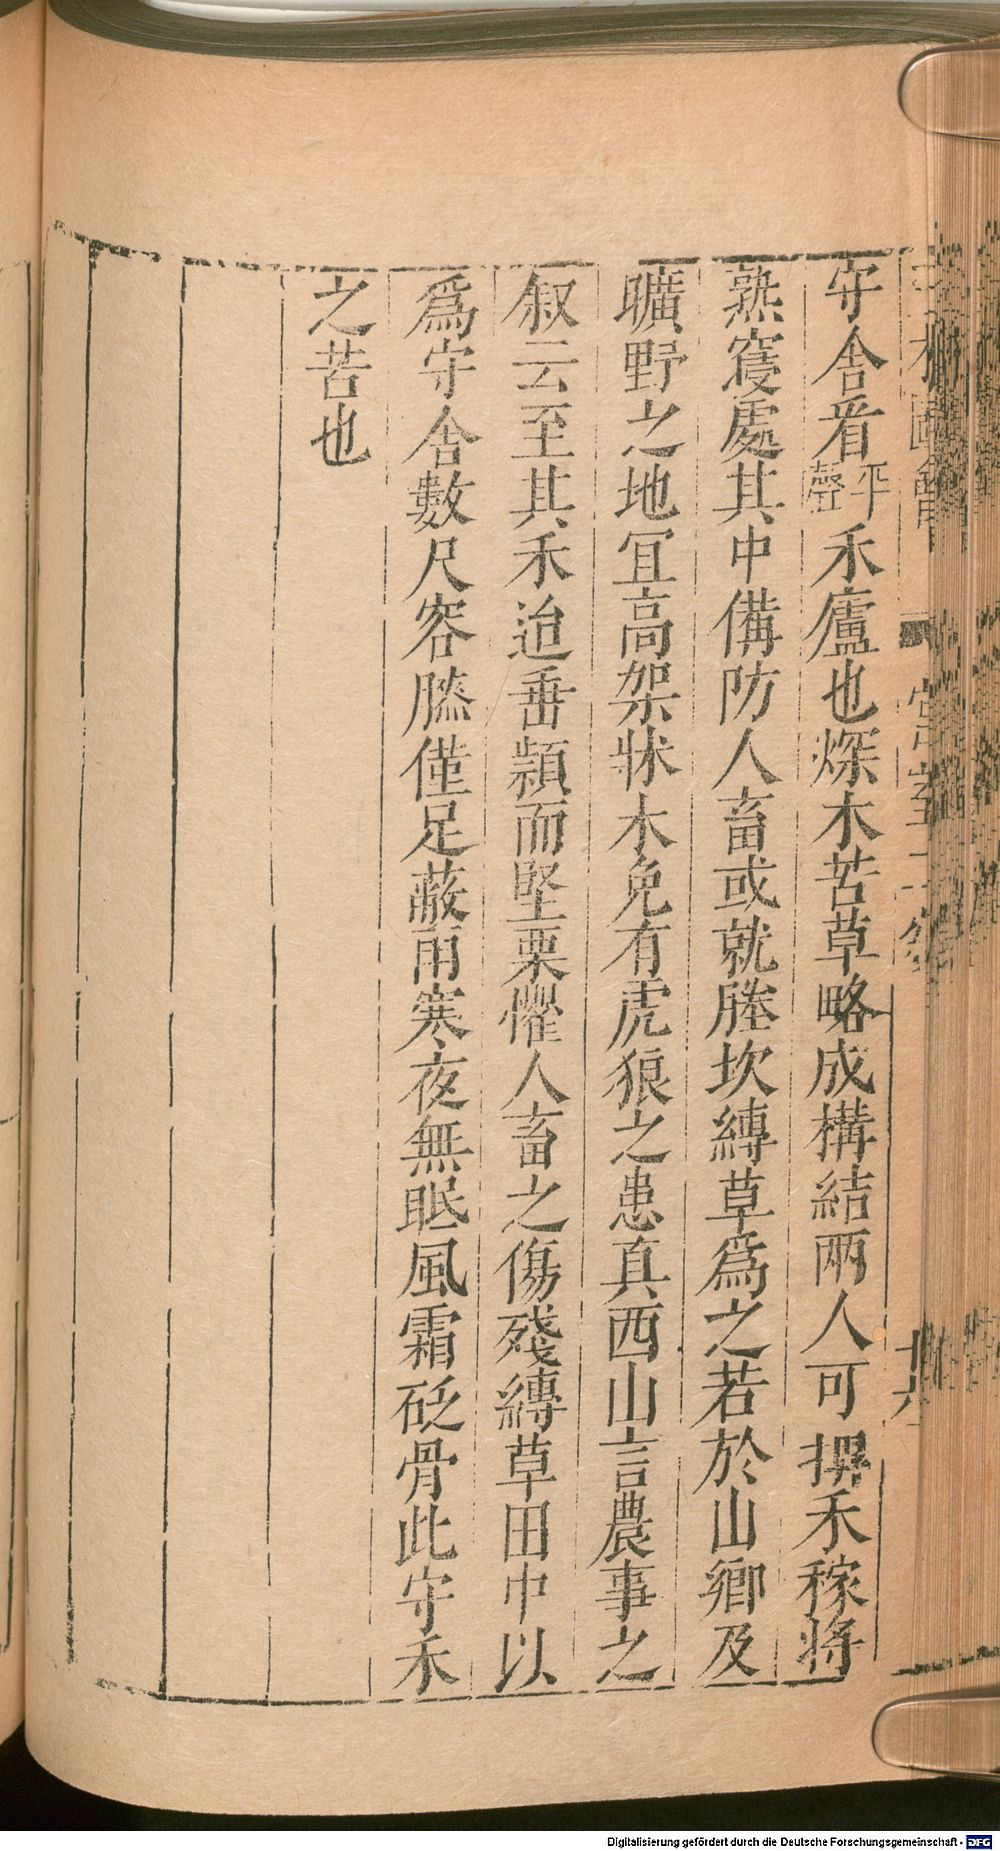 守舍看平聲禾廬也㷛木苫草略成構結兩人可攑禾稼將
熟寖處其中備防人畜或就塍坎縛草爲之若於山鄉及
曠野之地宜高架牀木免有虎狼之患真西山言農事之
叙云至其禾迨垂頴而堅栗懼人畜之傷殘縛草田中以
爲守舍數尺容膝僅足蔽雨寒夜無眠風霜砭骨此守禾
之苦也
宮室二卷
廿六
Digitalisierung gefördert durch die Deutsche Forschungsgemeinschaft - DFG